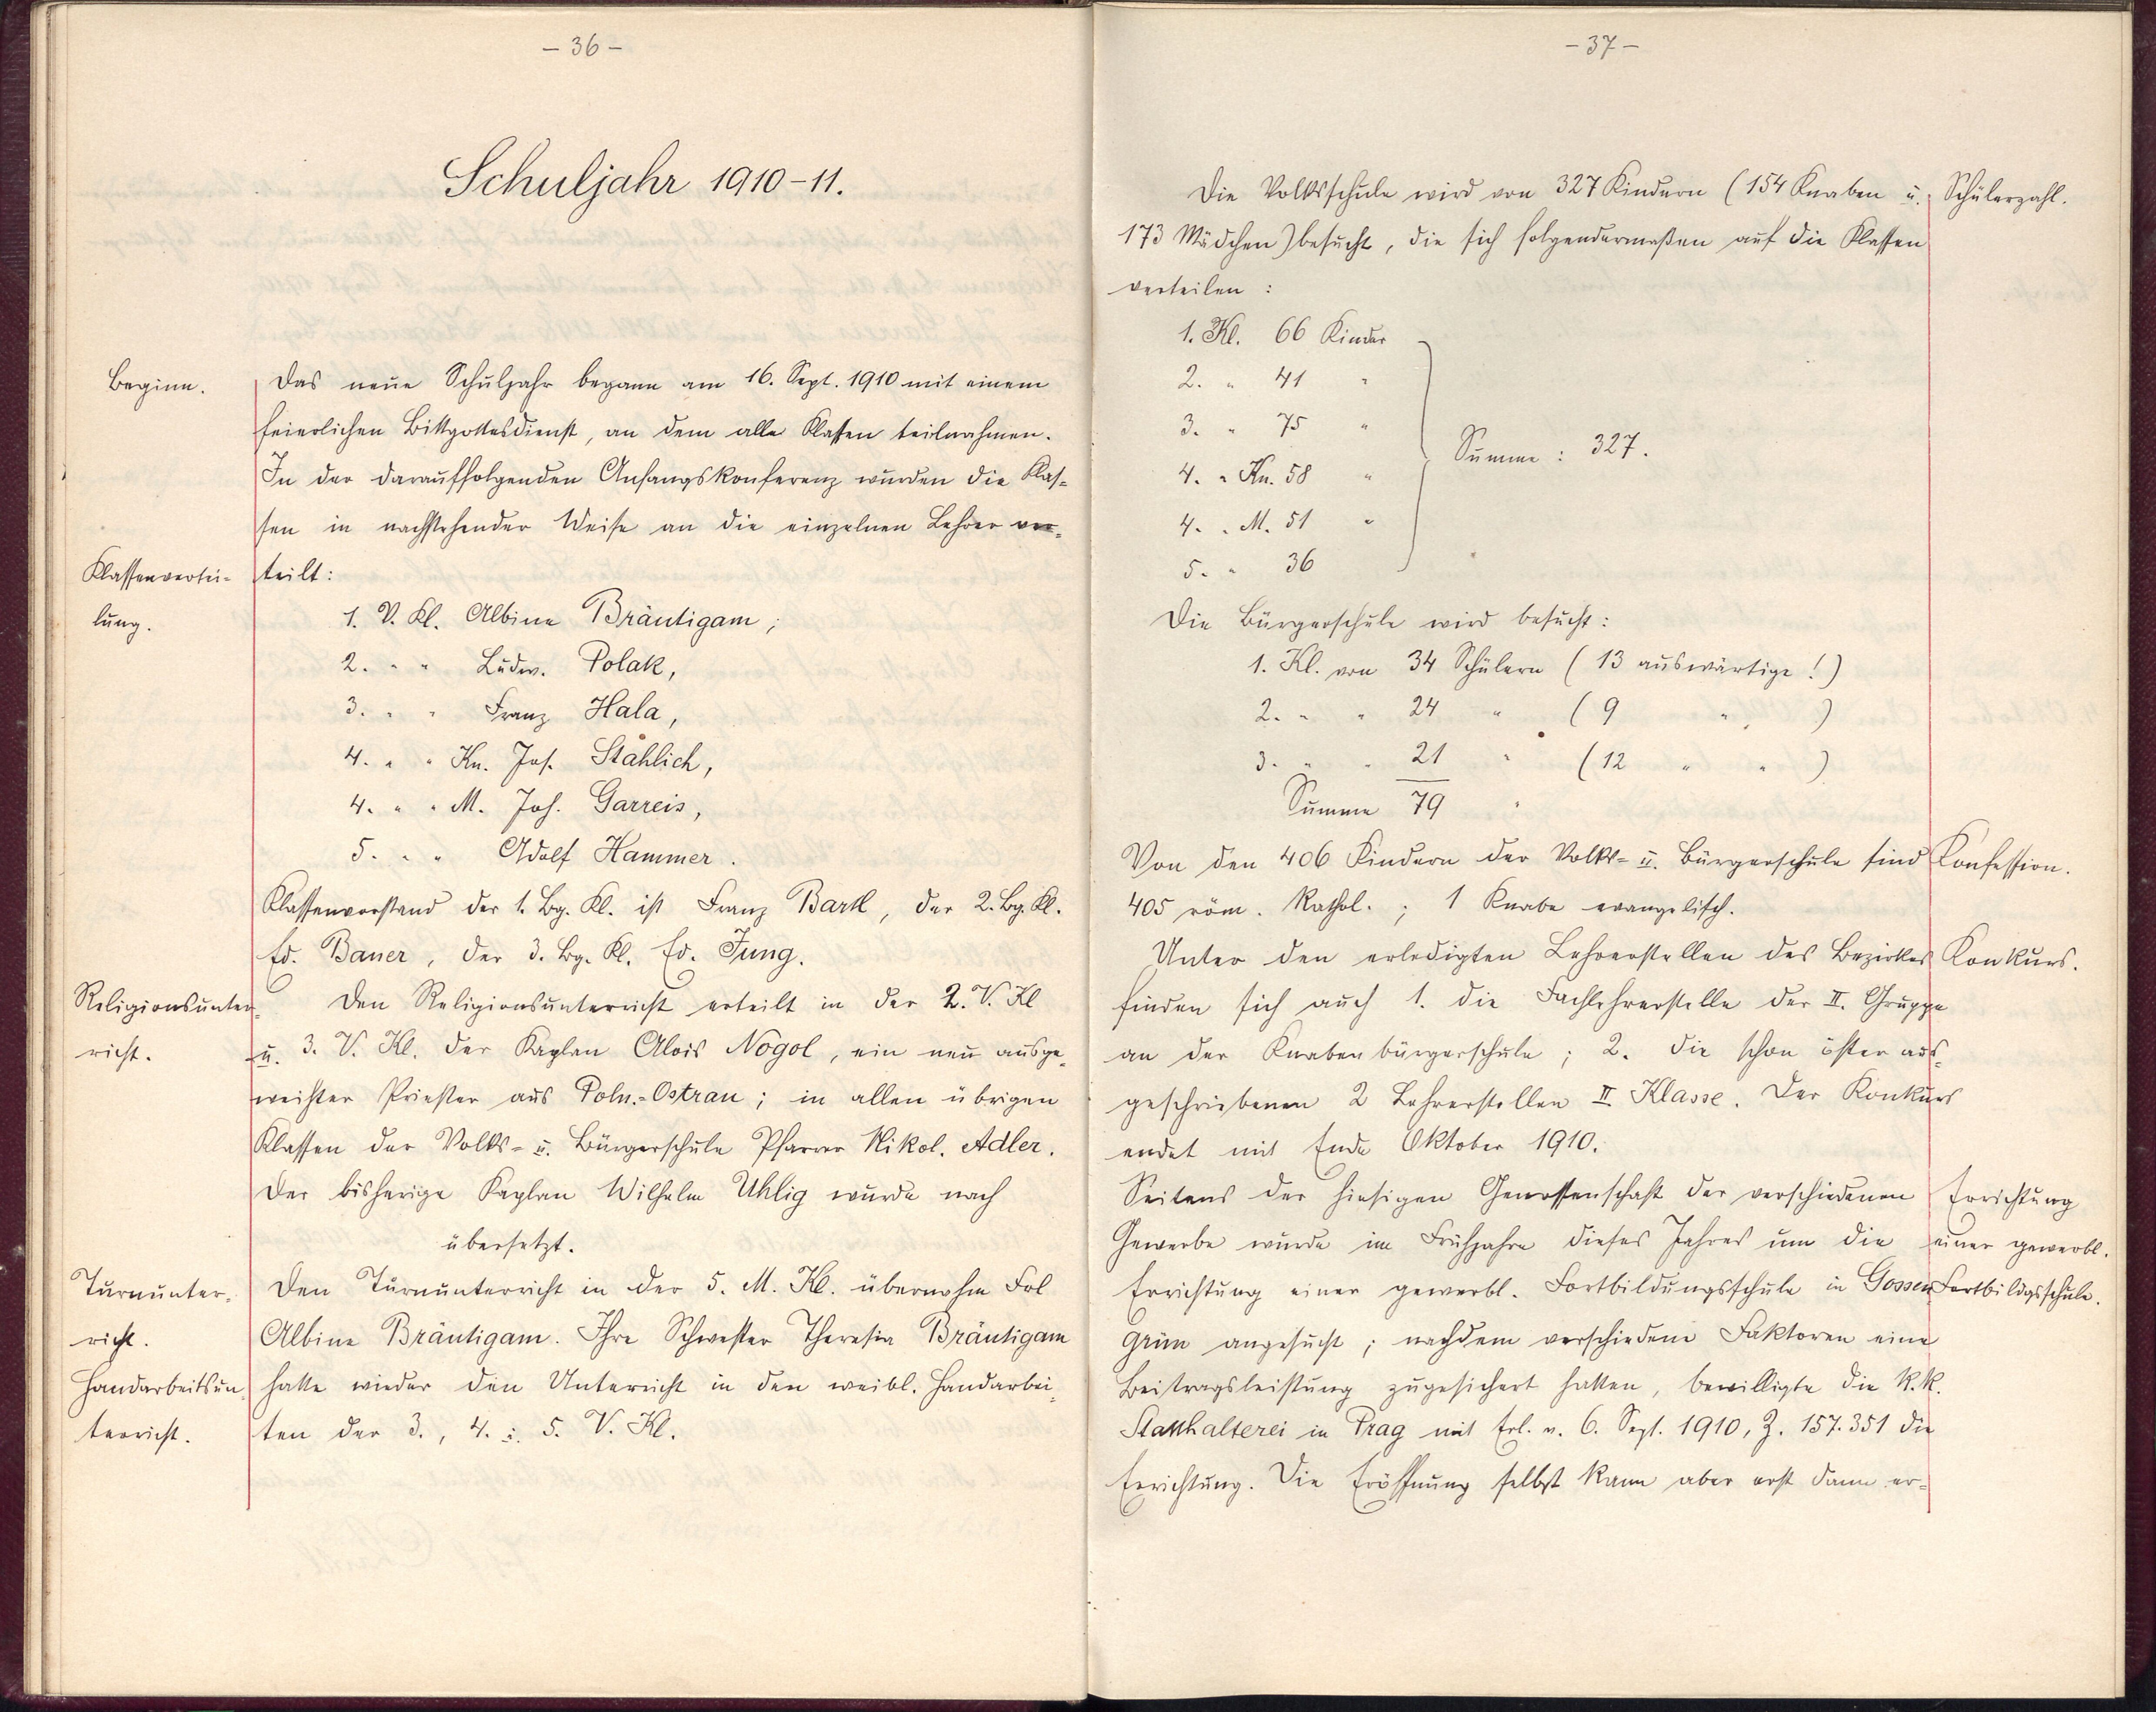 - 36 -
Schuljahr 1910-11.
Beginn.
Das neue Schuljahr begann am 16. Sept. 1910 mit einem
feierlichen Bittgottesdienst, an dem alle Klassen teilnahmen.
In der darauffolgenden Anfangskonferenz wurden die Klas-
sen in nachstehender Weise an die einzelnen Lehrer ver-
Klassenvertei-
teilt:
lung.
1. V. Kl. Albine Bräutigam;
2. " " Ludw. Polak,
3. " " Franz Hala,
4. " " Kn. Jos. Stahlich,
4. " " M. Joh. Garreis,
5. " " Adolf Hammer.
Klassenvorstand der 1. Bg. Kl. ist Franz Bartl, der 2. Bg. Kl.
Ed. Bauer, der 3. Bg. Kl. Ed. Jung.
Religionsunter-
Den Religionsunterricht erteilt in der 2. V. Kl
richt.
u. 3. V. Kl. der Kaplan Alois Nogol, ein neu ausge-
weihter Priester aus Poln.-Ostrau; in allen übrigen
Klassen der Volks- u. Bürgerschule Pfarrer Nikol. Adler.
Der bisherige Kaplan Wilhelm Uhlig wurde nach
übersetzt.
Turnunter-
Den Turnunterricht in der 5. M. Kl. übernahm Frl
richt.
Albine Bräutigam. Ihre Schwester Theresia Bräutigam
Handarbeitsun-
hatte wieder den Unterricht in den weibl. Handarbei-
terricht.
ten der 3., 4. u. 5. V. Kl.
- 37 -
Die Volksschule wird von 327 Kindern (154 Knaben u.
Schülerzahl.
173 Mädchen) besucht, die sich folgendermaßen auf die Klassen
verteilen:
1. Kl. 66 Kinder
2. " 41 "
3. " 75 "
Summe: 327.
4. " Kn. 58 "
4. " M. 51 "
5. " 36
Die Bürgerschule wird besucht:
1. Kl. von 34 Schülern (13 auswärtige!)
2. " " 24 " (9 " " )
3. " " 21 " (12 " " )
Summe 79 "
Von den 406 Kindern der Volks- u. Bürgerschule sind
Konfession.
405 röm. kathol.; 1 Knabe evangelisch.
Unter den erledigten Lehrerstellen des Bezirkes
Konkurs.
finden sich auch 1. die Fachlehrerstelle der II. Gruppe
an der Knabenbürgerschule; 2. die schon öfter aus-
geschriebenen 2 Lehrerstellen II Klasse. Der Konkurs
endet mit Ende Oktober 1910.
Seitens der hiesigen Genossenschaft der verschiedenen
Errichtung
Gewerbe wurde im Frühjahre dieses Jahres um die
einer gewerbl.
Errichtung einer gewerbl. Fortbildungsschule in Gossen
Fortbildgsschule.
grün angesucht; nachdem verschiedene Faktoren eine
Beitragsleistung zugesichert hatten, bewilligte die k.k.
Statthalterei in Prag mit Erl. v. 6. Sept. 1910, Z. 157.351 die
Errichtung. Die Eröffnung selbst kann aber erst dann er-